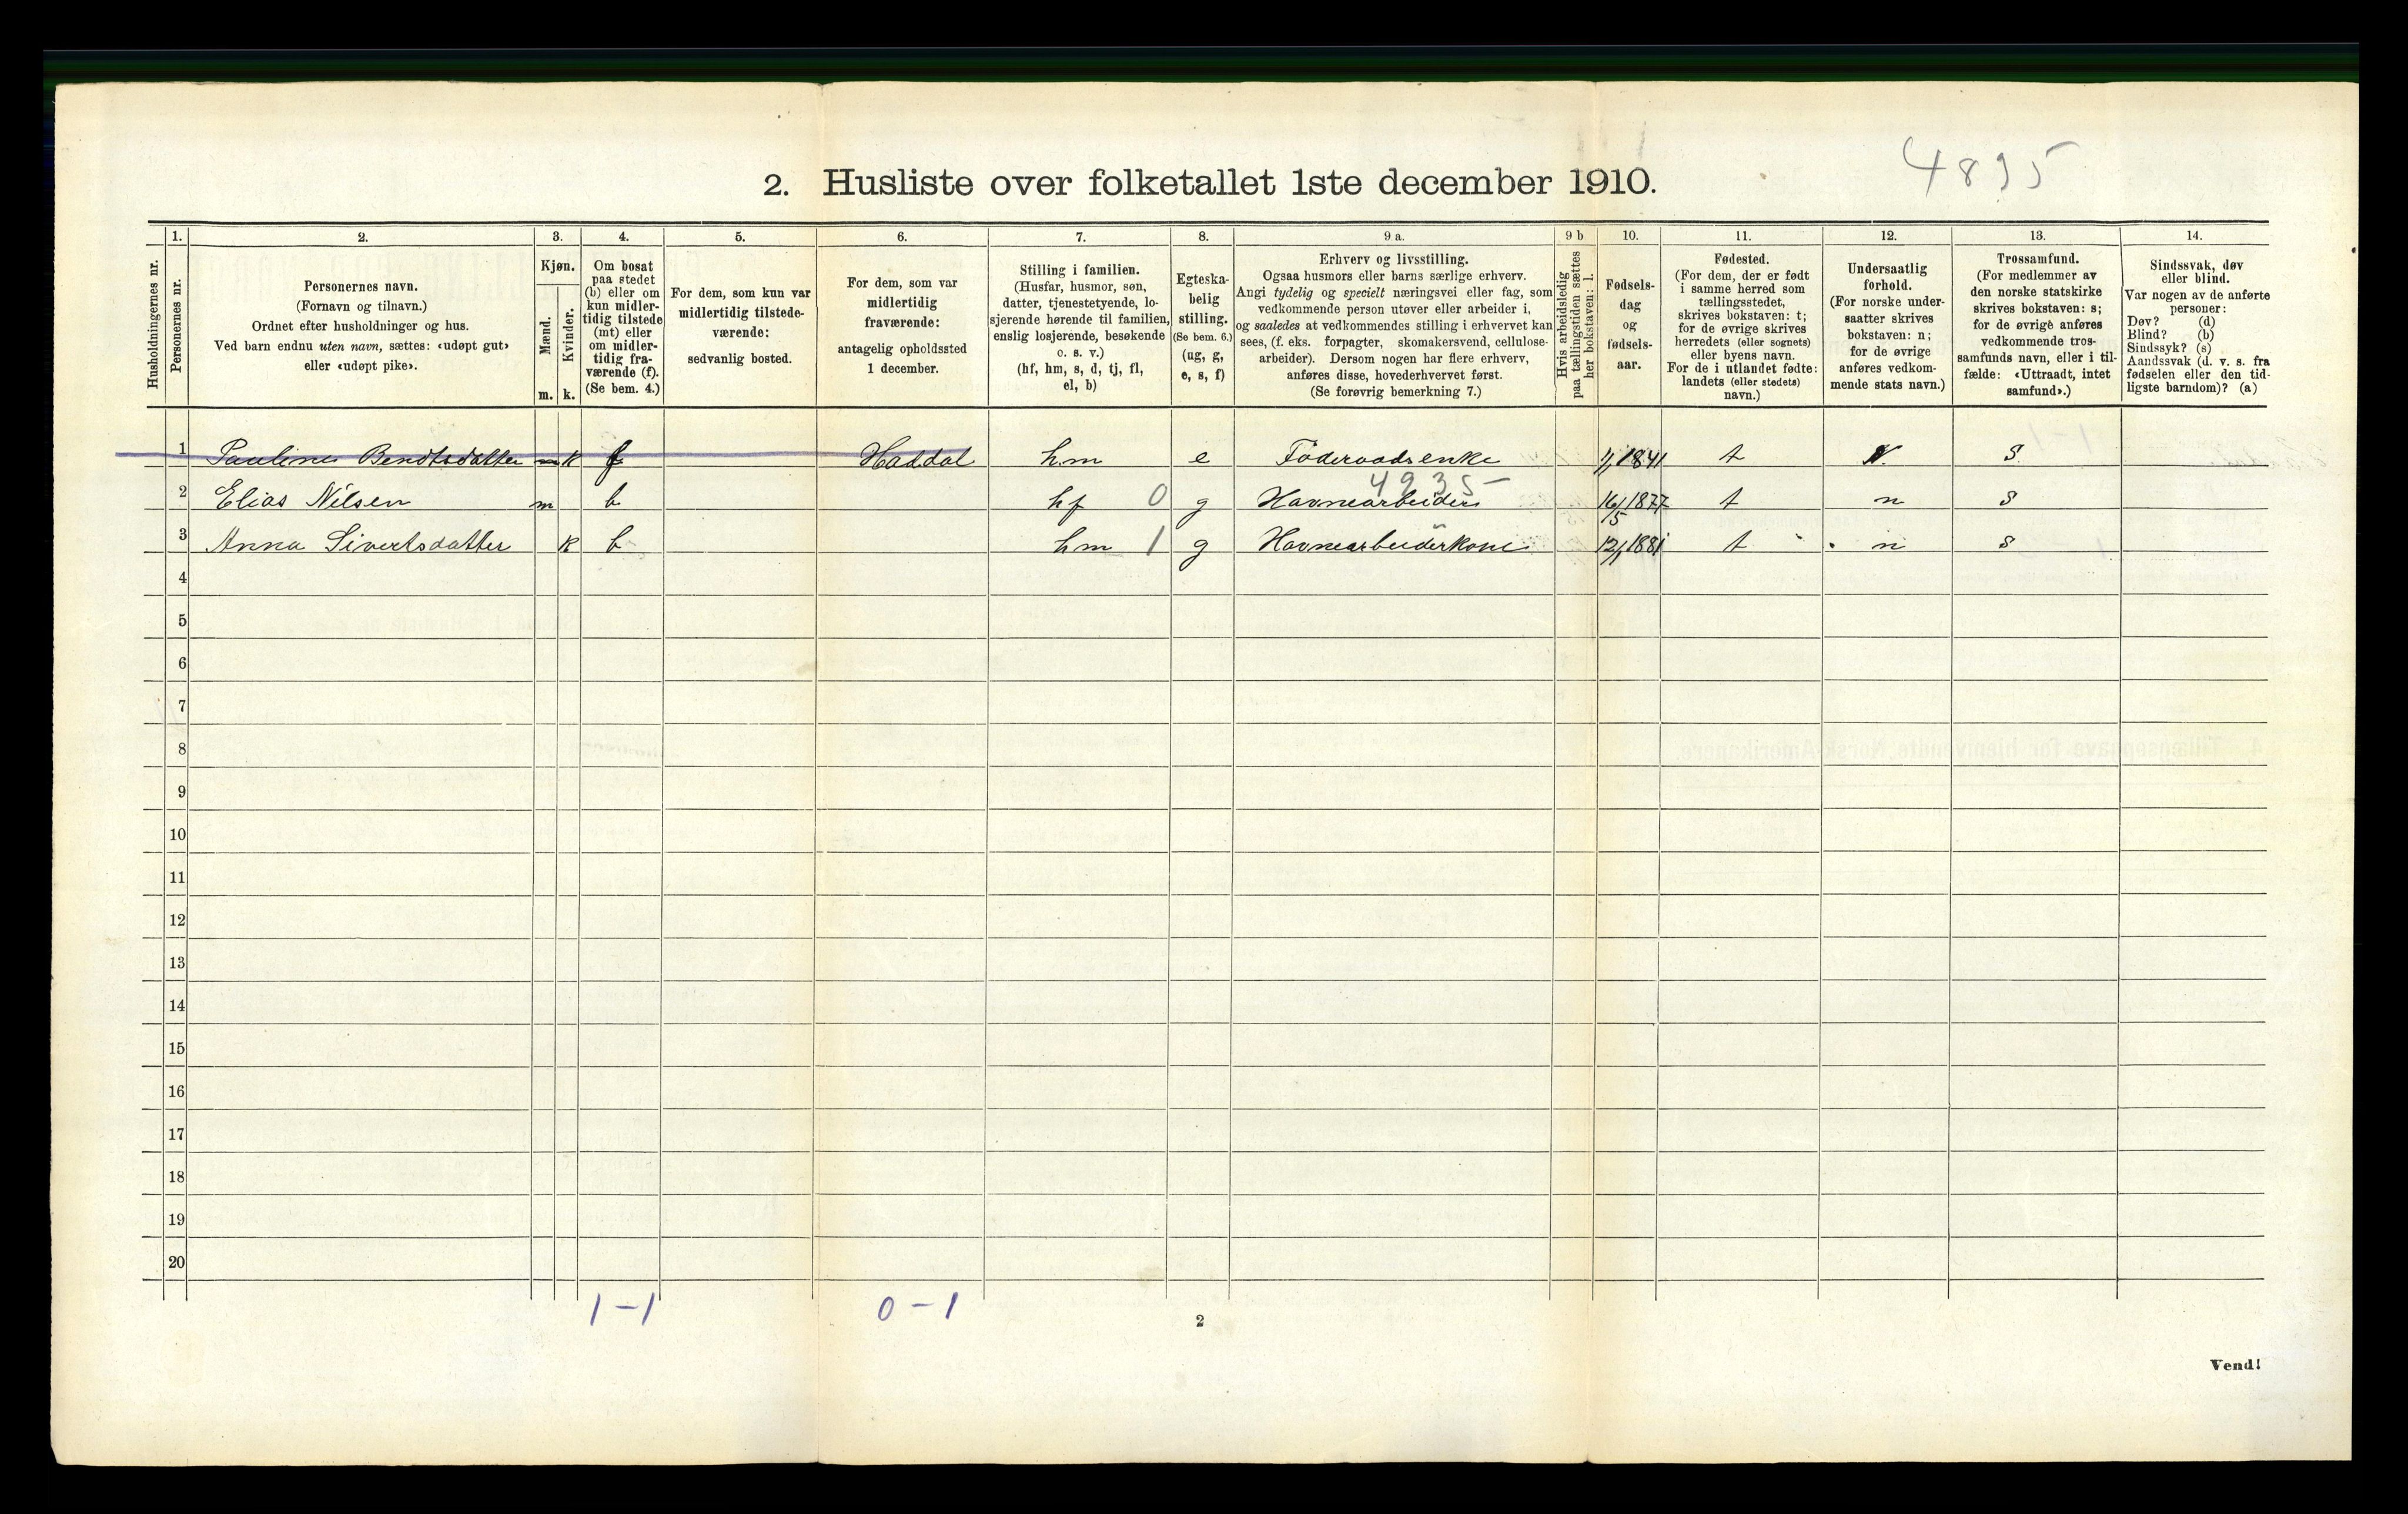 4895
2. Husliste over folketallet 1ste december 1910.
1. 2. 3. 4. 5. 6. 7. 8. 9 a. 9 b 10. 11. 12. 13. 14.
Husholdningernes nr.
Personernes nr.
Personernes navn.
(Fornavn og tilnavn.)
Ordnet efter husholdninger og hus.
Ved barn endnu uten navn, sættes: «udøpt gut»
eller «udøpt pike».
Kjøn.
Mænd.
Kvinder.
m. k.
Om bosat
paa stedet
(b) eller om
kun midler-
tidig tilstede
(mt) eller
om midler-
tidig fra-
værende (f).
(Se bem. 4.)
For dem, som kun var
midlertidig tilstede-
værende:
sedvanlig bosted.
For dem, som var
midlertidig
fraværende:
antagelig opholdssted
1 december.
Stilling i familien.
(Husfar, husmor, søn,
datter, tjenestetyende, lo-
sjerende hørende til familien,
enslig losjerende, besøkende
o. s. v.)
(hf, hm, s, d, tj, fl,
el, b)
Egteska-
belig
stilling.
(Se bem. 6.)
(ug, g,
e, s, f)
Erhverv og livsstilling.
Ogsaa husmors eller barns særlige erhverv.
Angi tydelig og specielt næringsvei eller fag, som
vedkommende person utøver eller arbeider i,
og saaledes at vedkommendes stilling i erhvervet kan
sees, (f. eks. forpagter, skomakersvend, cellulose-
arbeider). Dersom nogen har flere erhverv,
anføres disse, hovederhvervet først.
(Se forøvrig bemerkning 7.)
Hvis arbeidsledig
paa tællingstiden sættes
her bokstaven: l.
Fødsels-
dag
og
fødsels-
aar.
Fødested.
(For dem, der er født
i samme herred som
tællingsstedet,
skrives bokstaven: t;
for de øvrige skrives
herredets (eller sognets)
eller byens navn.
For de i utlandet fødte:
landets (eller stedets)
navn.)
Undersaatlig
forhold.
(For norske under-
saatter skrives
bokstaven: n;
for de øvrige
anføres vedkom-
mende stats navn.)
Trossamfund.
(For medlemmer av
den norske statskirke
skrives bokstaven: s;
for de øvrige anføres
vedkommende tros-
samfunds navn, eller i til-
fælde: «Uttraadt, intet
samfund».)
Sindssvak, døv
eller blind.
Var nogen av de anførte
personer:
Døv? (d)
Blind? (b)
Sindssyk? (s)
Aandssvak (d. v. s. fra
fødselen eller den tid-
ligste barndom)? (a)
1 Pauline Bendtsdatter k f Haddal hm e Føderaadsenke 1/1 1841 t N. S.
4935
2 Elias Nilsen m b hf 0 g Havnearbeider 16/5 1877 t n s
3 Anna Sivertsdatter k b hm 1 g Havnearbeiderkone 12/1 1881 t n s
4
5
6
7
8
9
10
11
12
13
14
15
16
17
18
19
20
1-1 0-1
2
Vend!